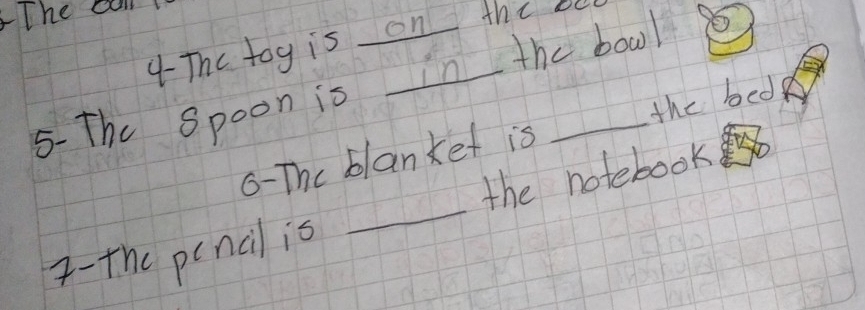 The
4-The toy is on the
5-The spoon is in the bowl
6-The blanket is ____ the bed
7-the pencil is ____ the notebook